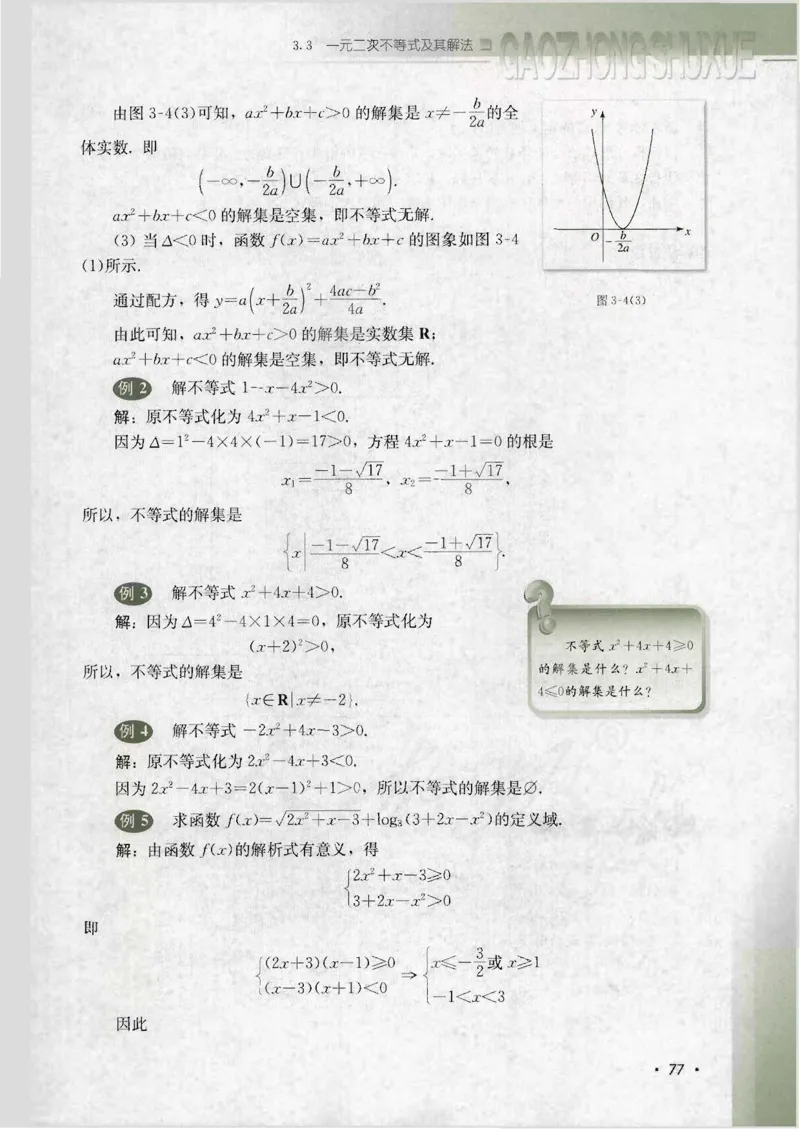 3.3 一元二次不等式及其解法
GAOZHONGSHUXUE
由图 3-4(3)可知，ax²+bx+c>0 的解集是 x≠-b/2a 的全
体实数. 即
(-∞,-b/2a)∪(-b/2a,+∞).
ax²+bx+c<0 的解集是空集，即不等式无解.
(3) 当 Δ<0 时，函数 f(x)=ax²+bx+c 的图象如图 3-4
(1)所示.
通过配方，得 y=a(x+b/2a)²+(4ac-b²)/4a.
由此可知，ax²+bx+c>0 的解集是实数集 R；
ax²+bx+c<0 的解集是空集，即不等式无解.
y
x
O
-b/2a
图 3-4(3)
例 2 解不等式 1-x-4x²>0.
解：原不等式化为 4x²+x-1<0.
因为 Δ=1²-4×4×(-1)=17>0，方程 4x²+x-1=0 的根是
x₁=(-1-√17)/8，x₂=(-1+√17)/8，
所以，不等式的解集是
{x|(-1-√17)/8<x<(-1+√17)/8}.
例 3 解不等式 x²+4x+4>0.
解：因为 Δ=4²-4×1×4=0，原不等式化为
(x+2)²>0，
所以，不等式的解集是
{x∈R|x≠-2}.
不等式 x²+4x+4≥0
的解集是什么？x²+4x+
4≤0的解集是什么？
例 4 解不等式 -2x²+4x-3>0.
解：原不等式化为 2x²-4x+3<0.
因为 2x²-4x+3=2(x-1)²+1>0，所以不等式的解集是∅.
例 5 求函数 f(x)=√(2x²+x-3)+log₃(3+2x-x²)的定义域.
解：由函数 f(x)的解析式有意义，得
{2x²+x-3≥0
3+2x-x²>0
即
{(2x+3)(x-1)≥0 ⇒ {x≤-3/2 或 x≥1
(x-3)(x+1)<0 -1<x<3
因此
· 77 ·